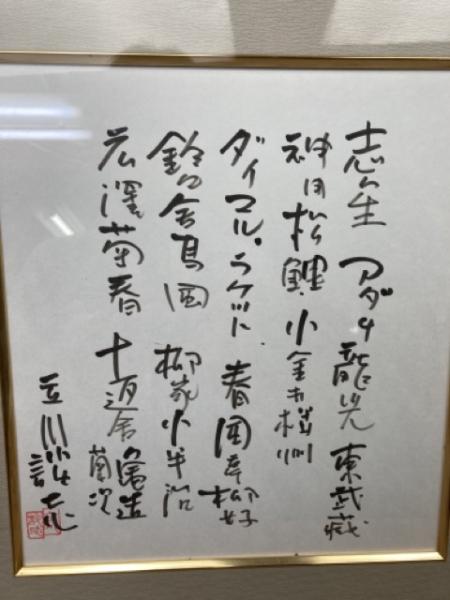 志ん生 アダチ龍光 東武蔵
神田松鯉 小金井桜洲
ダイマル・ラケット 春風亭柳好
鈴々舎馬風 柳家小半治
広澤菊春 十返舎亀造 菊次
立川談志